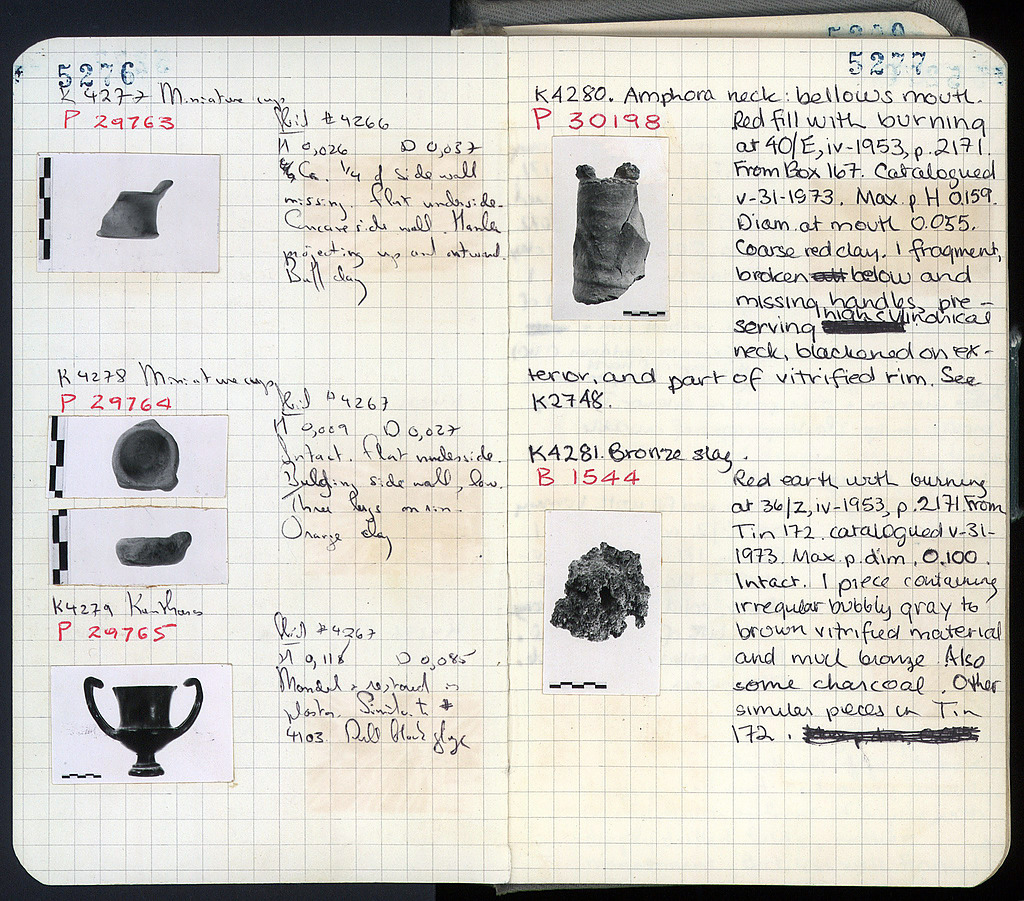 5276
K 4277 Miniature cup
P 29763
Ibid #4266
H 0,026 D 0,037
Ca. 1/4 of side wall
missing. Flat underside.
Concave side wall. Handle
projecting up and outward.
Buff clay
K 4278 Miniature cup
P 29764
Ibid # 4267
H 0,009 D 0,027
Intact. Flat underside.
Bulging side wall, low.
Three lugs on rim.
Orange clay
K4279 Kantharos
P 29765
Ibid #4267
H 0,118 D 0,085
Mended & restored in
plaster. Similar to #
4103. Dull black glaze
5277
K4280. Amphora neck: bellows mouth.
P 30198
Red fill with burning
at 40/E, iv-1953, p.2171.
From Box 167. Catalogued
v-31-1973. Max. p. H 0.159.
Diam. at mouth 0.055.
Coarse red clay. 1 fragment,
broken below and
missing handles, pre-
serving high cylindrical
neck, blackened on ex-
terior, and part of vitrified rim. See
K2748.
K4281. Bronze slag.
B 1544
Red earth with burning
at 36/Z, iv-1953, p.2171. From
Tin 172. catalogued v-31-
1973. Max. p. dim. 0.100.
Intact. 1 piece containing
irregular bubbly gray to
brown vitrified material
and much bronze. Also
some charcoal. Other
similar pieces in Tin
172.